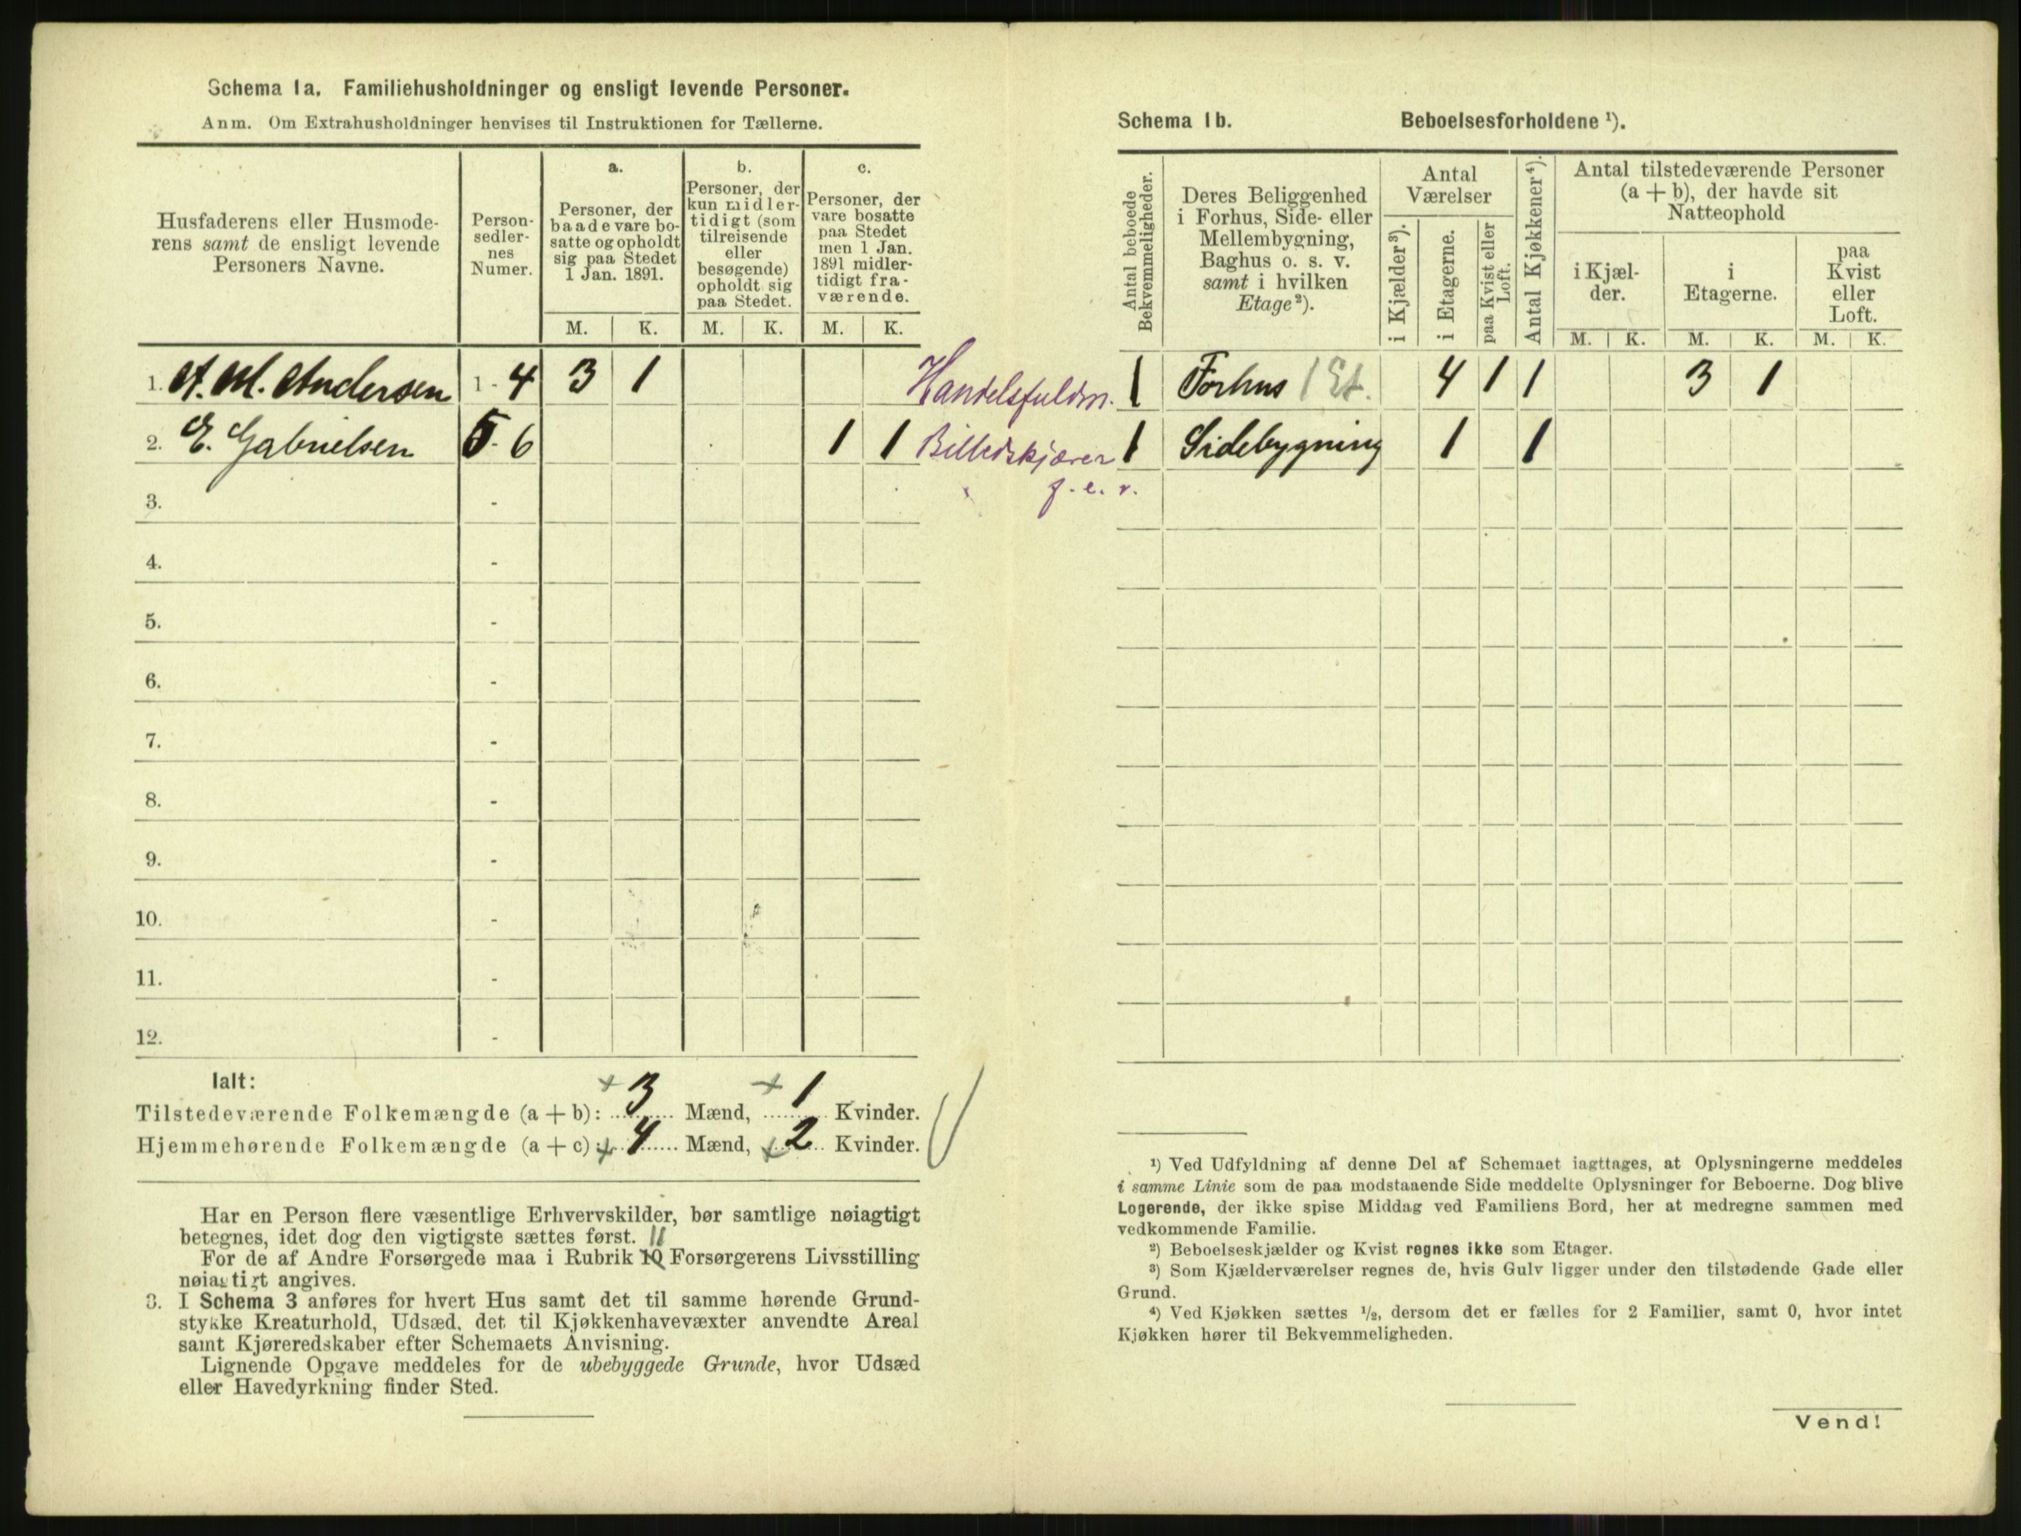 Schema 1a. Familiehusholdninger og ensligt levende Personer.
Anm. Om Extrahusholdninger henvises til Instruktionen for Tællerne.
Husfaderens eller Husmode-
rens samt de ensligt levende
Personers Navne.
Person-
sedler-
nes
Numer.
a.
Personer, der
baade vare bo-
satte og opholdt
sig paa Stedet
1 Jan. 1891.
b.
Personer, der
kun midler-
tidigt (som
tilreisende
eller
besøgende)
opholdt sig
paa Stedet.
c.
Personer, der
vare bosatte
paa Stedet
men 1 Jan.
1891 midler-
tidigt fra-
værende.
M. K. M. K. M. K.
1. A. M. Andersen 1 - 4 3 1 Handelsfuldm.
2. E. Gabrielsen 5 - 6 1 1 Billedskjærer
f. e. v.
3. -
4. -
5. -
6. -
7. -
8. -
9. -
10. -
11. -
12. -
Ialt:
Tilstedeværende Folkemængde (a + b): 3 Mænd, 1 Kvinder.
Hjemmehørende Folkemængde (a + c): 4 Mænd, 2 Kvinder.
Har en Person flere væsentlige Erhvervskilder, bør samtlige nøiagtigt
betegnes, idet dog den vigtigste sættes først.
11
For de af Andre Forsørgede maa i Rubrik 10 Forsørgerens Livsstilling
nøiagtigt angives.
3. I Schema 3 anføres for hvert Hus samt det til samme hørende Grund-
stykke Kreaturhold, Udsæd, det til Kjøkkenhavevæxter anvendte Areal
samt Kjøreredskaber efter Schemaets Anvisning.
Lignende Opgave meddeles for de ubebyggede Grunde, hvor Udsæd
eller Havedyrkning finder Sted.
Schema 1b. Beboelsesforholdene ¹).
Antal beboede
Bekvemmeligheder.
Deres Beliggenhed
i Forhus, Side- eller
Mellembygning,
Baghus o. s. v.
samt i hvilken
Etage²).
Antal
Værelser
i Kjælder³).
i Etagerne.
paa Kvist eller
Loft.
Antal Kjøkkener⁴).
Antal tilstedeværende Personer
(a + b), der havde sit
Natteophold
i Kjæl-
der.
i
Etagerne.
paa
Kvist
eller
Loft.
M. K. M. K. M. K.
1 Forhus 1 Et. 4 1 1 3 1
1 Sidebygning 1 1
¹) Ved Udfyldning af denne Del af Schemaet iagttages, at Oplysningerne meddeles
i samme Linie som de paa modstaaende Side meddelte Oplysninger for Beboerne. Dog blive
Logerende, der ikke spise Middag ved Familiens Bord, her at medregne sammen med
vedkommende Familie.
²) Beboelseskjælder og Kvist regnes ikke som Etager.
³) Som Kjælderværelser regnes de, hvis Gulv ligger under den tilstødende Gade eller
Grund.
⁴) Ved Kjøkken sættes ½, dersom det er fælles for 2 Familier, samt 0, hvor intet
Kjøkken hører til Bekvemmeligheden.
Vend!